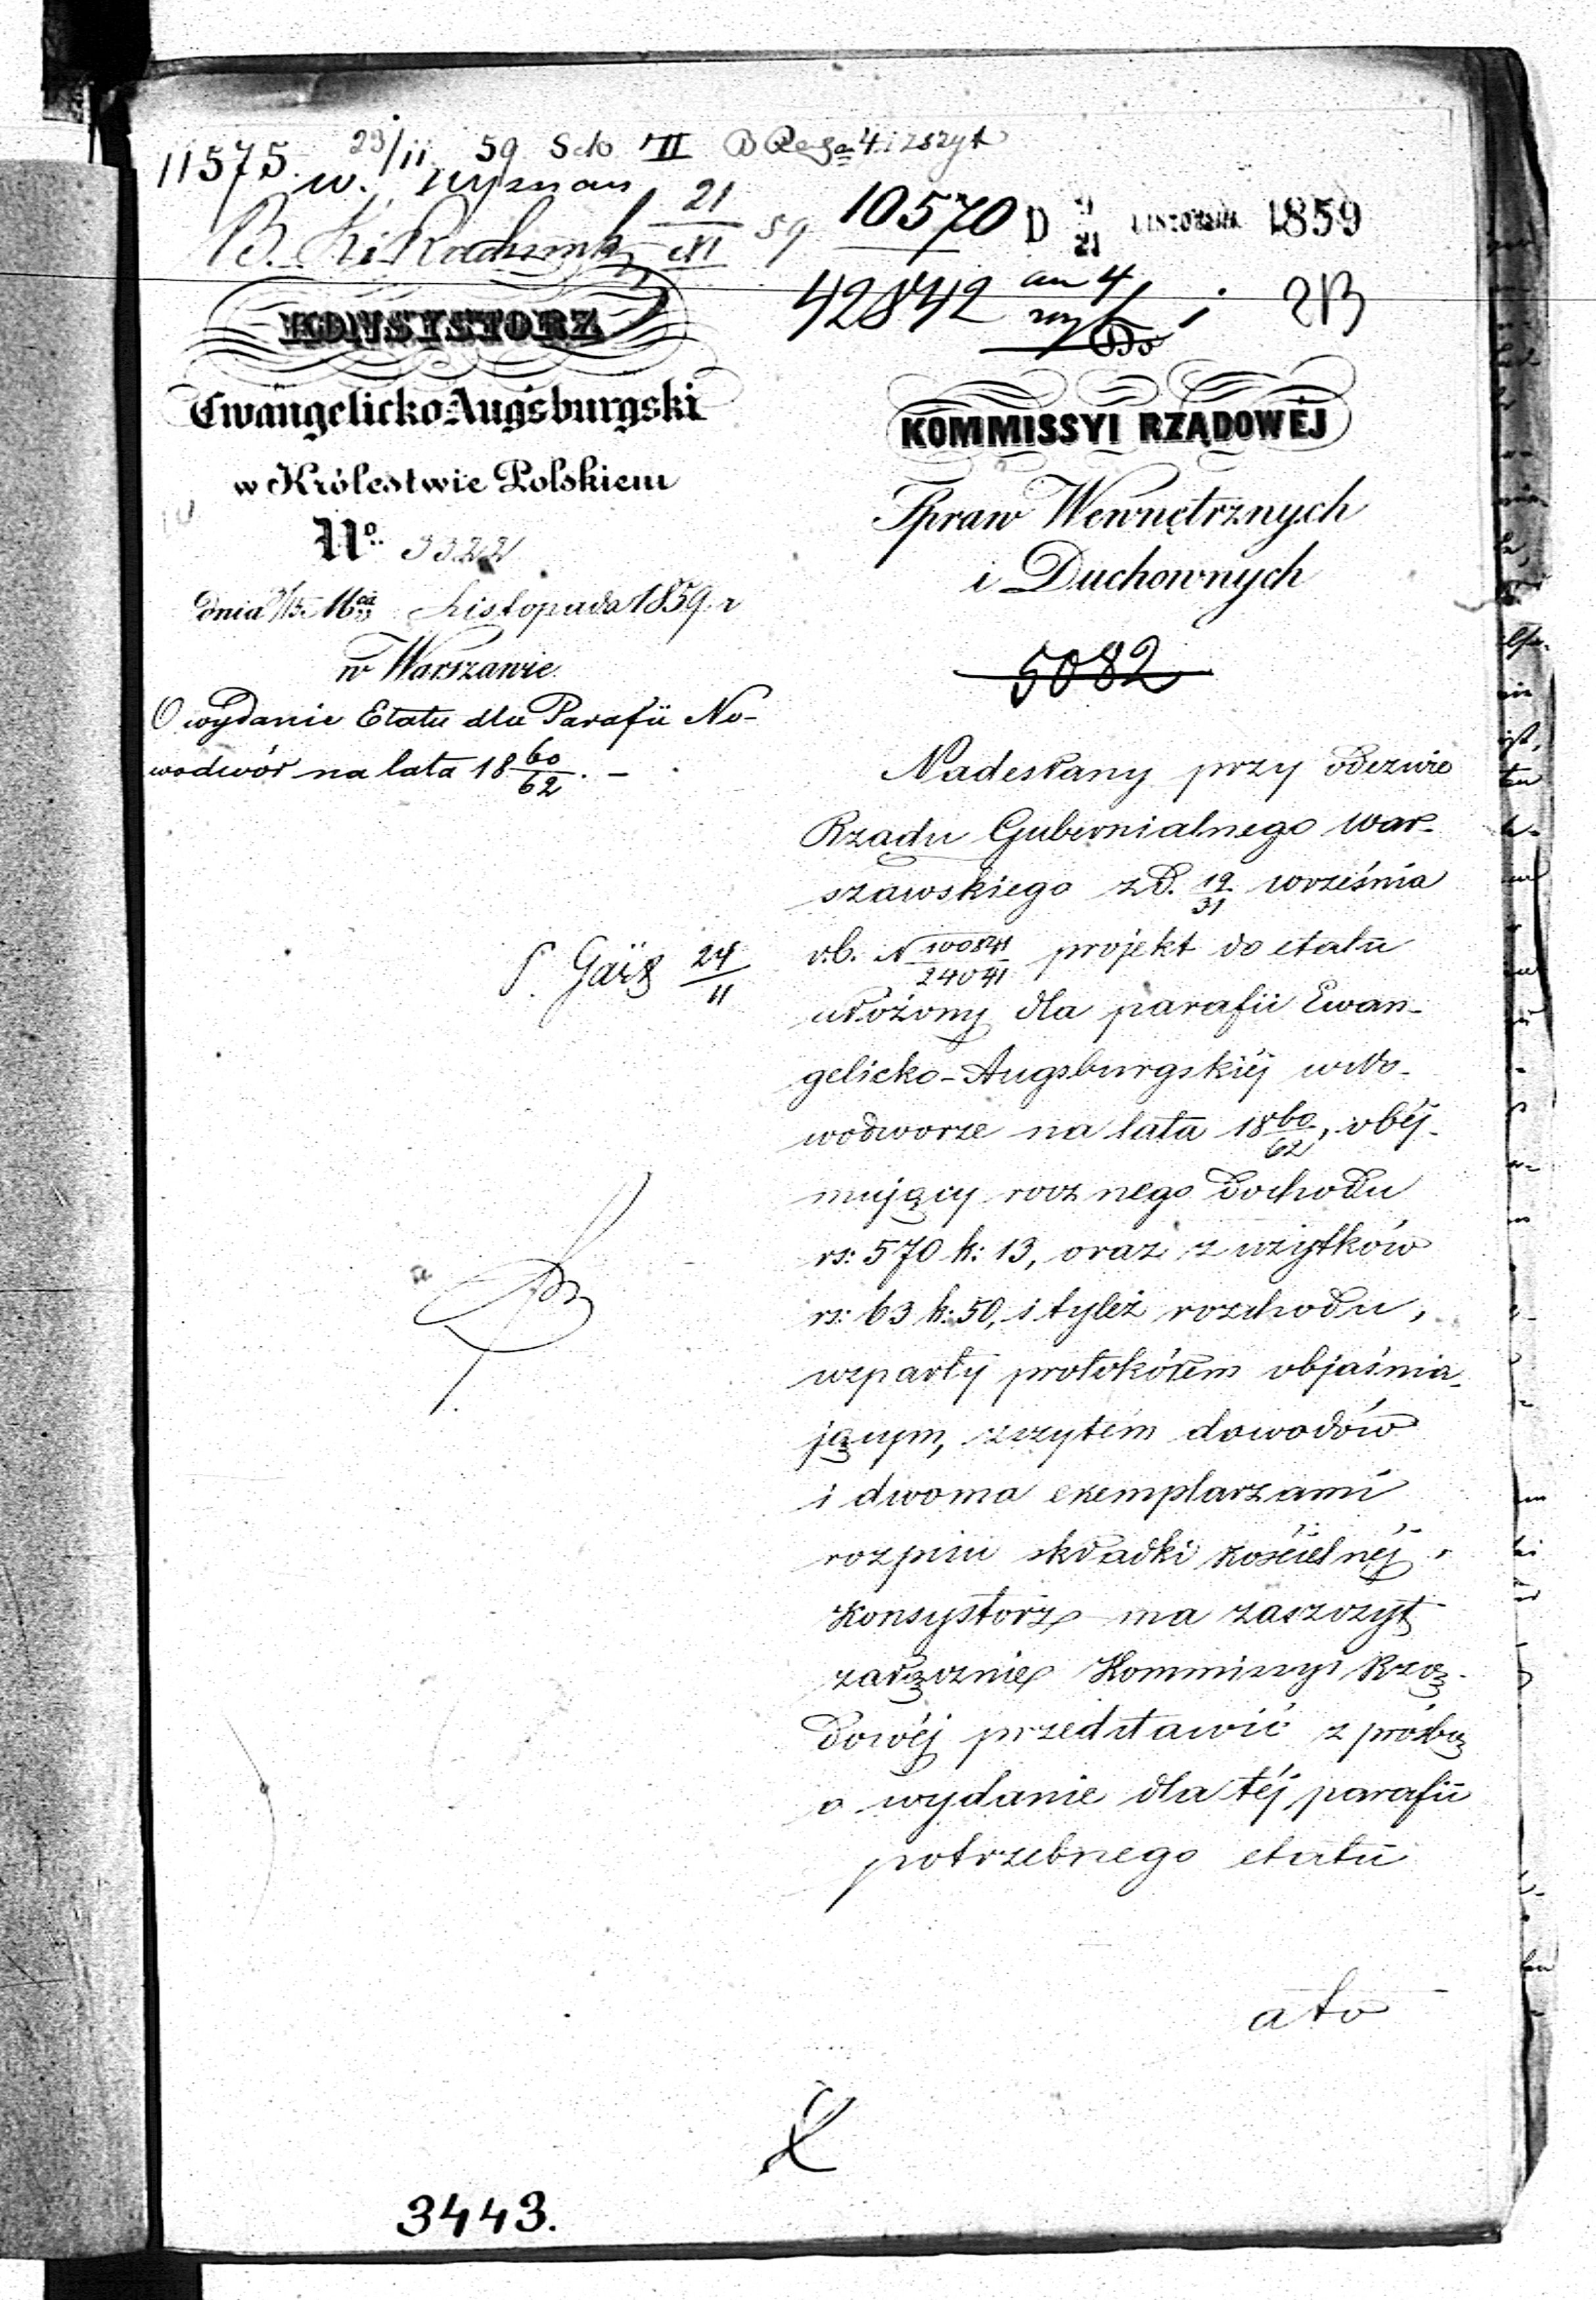 11575. 23/11 59 Sek. VII
21/XI 59
10570 D 9/21 LISTOPADA 1859
42842
213
KONSYSTORZ
Ewangelicko-Augsburgski
w Królestwie Polskiem
No. 3322
dnia 16 Listopada 1859 r
w Warszawie.
O wydanie Etatu dla Parafii No-
wodwór na lata 18 60/62. -
24/11
Do
KOMMISSYI RZĄDOWÉJ
Spraw Wewnętrznych
i Duchownych
5082
Nadesłany przy odezwie
Rządu Gubernialnego War-
szawskiego z d. 19/31 września
r.b. N 100841/24041 projekt do etatu
ułożony dla parafii Ewan-
gelicko-Augsburgskiéj w No-
wodworze na lata 18 60/62, obéj-
mujący rocznego dochodu
rs: 570 k: 13, oraz z użytków
rs: 63 k: 50, i tyleż rozchodu,
wsparty protokółem objaśnia-
jącym, zszytem dowodów
i dwoma exemplarzami
rozpisu składki kościelnéj,
Konsystorz ma zaszczyt
załącznie Kommissyi Rzą-
dowéj przedstawić z prośbą
o wydanie dla téj parafii
potrzebnego etatu
a to
3443.